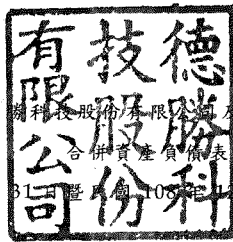 德勝科
技股份
有限公司
勝科技股份有限公司及
合併資產負債表
31日暨民國 108年1